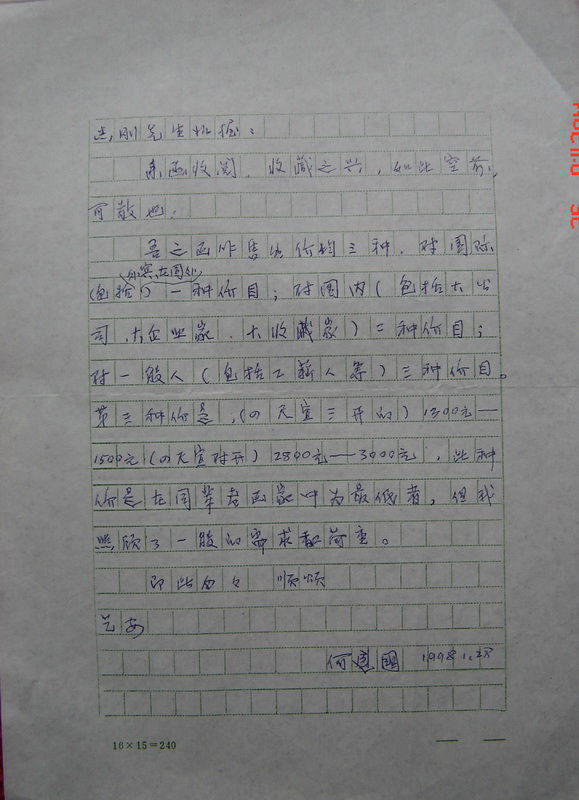 刚先生如握:
来函收阅。收藏之兴,如此空前,
可敬也。
吾之画作售出价均三种。对国际
(外宾在国外)
(包括)一种价目;对国内(包括大公
司、大企业家、大收藏家)二种价目;
对一般人(包括工薪人等)三种价目。
第三种价是,(四尺宣三开的)1300元—
1500元(四尺宣对开)2800元—3000元,此种
价是在同辈老画家中为最低者,但我
照顾了一般的需求和荷重。
即此匆匆 顺颂
艺安
何 1998.1.28
16×15=240